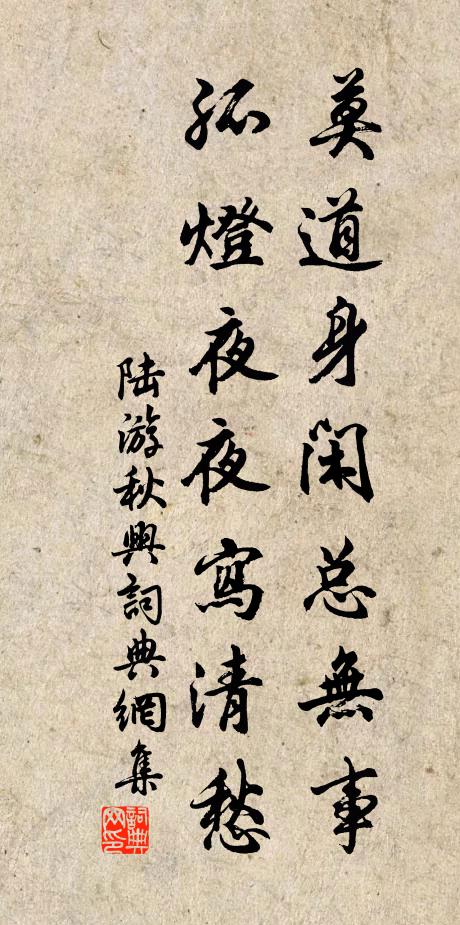 莫道身閑总無事
孤燈夜夜寫清愁
陆游秋興詞典網集
詞典网印